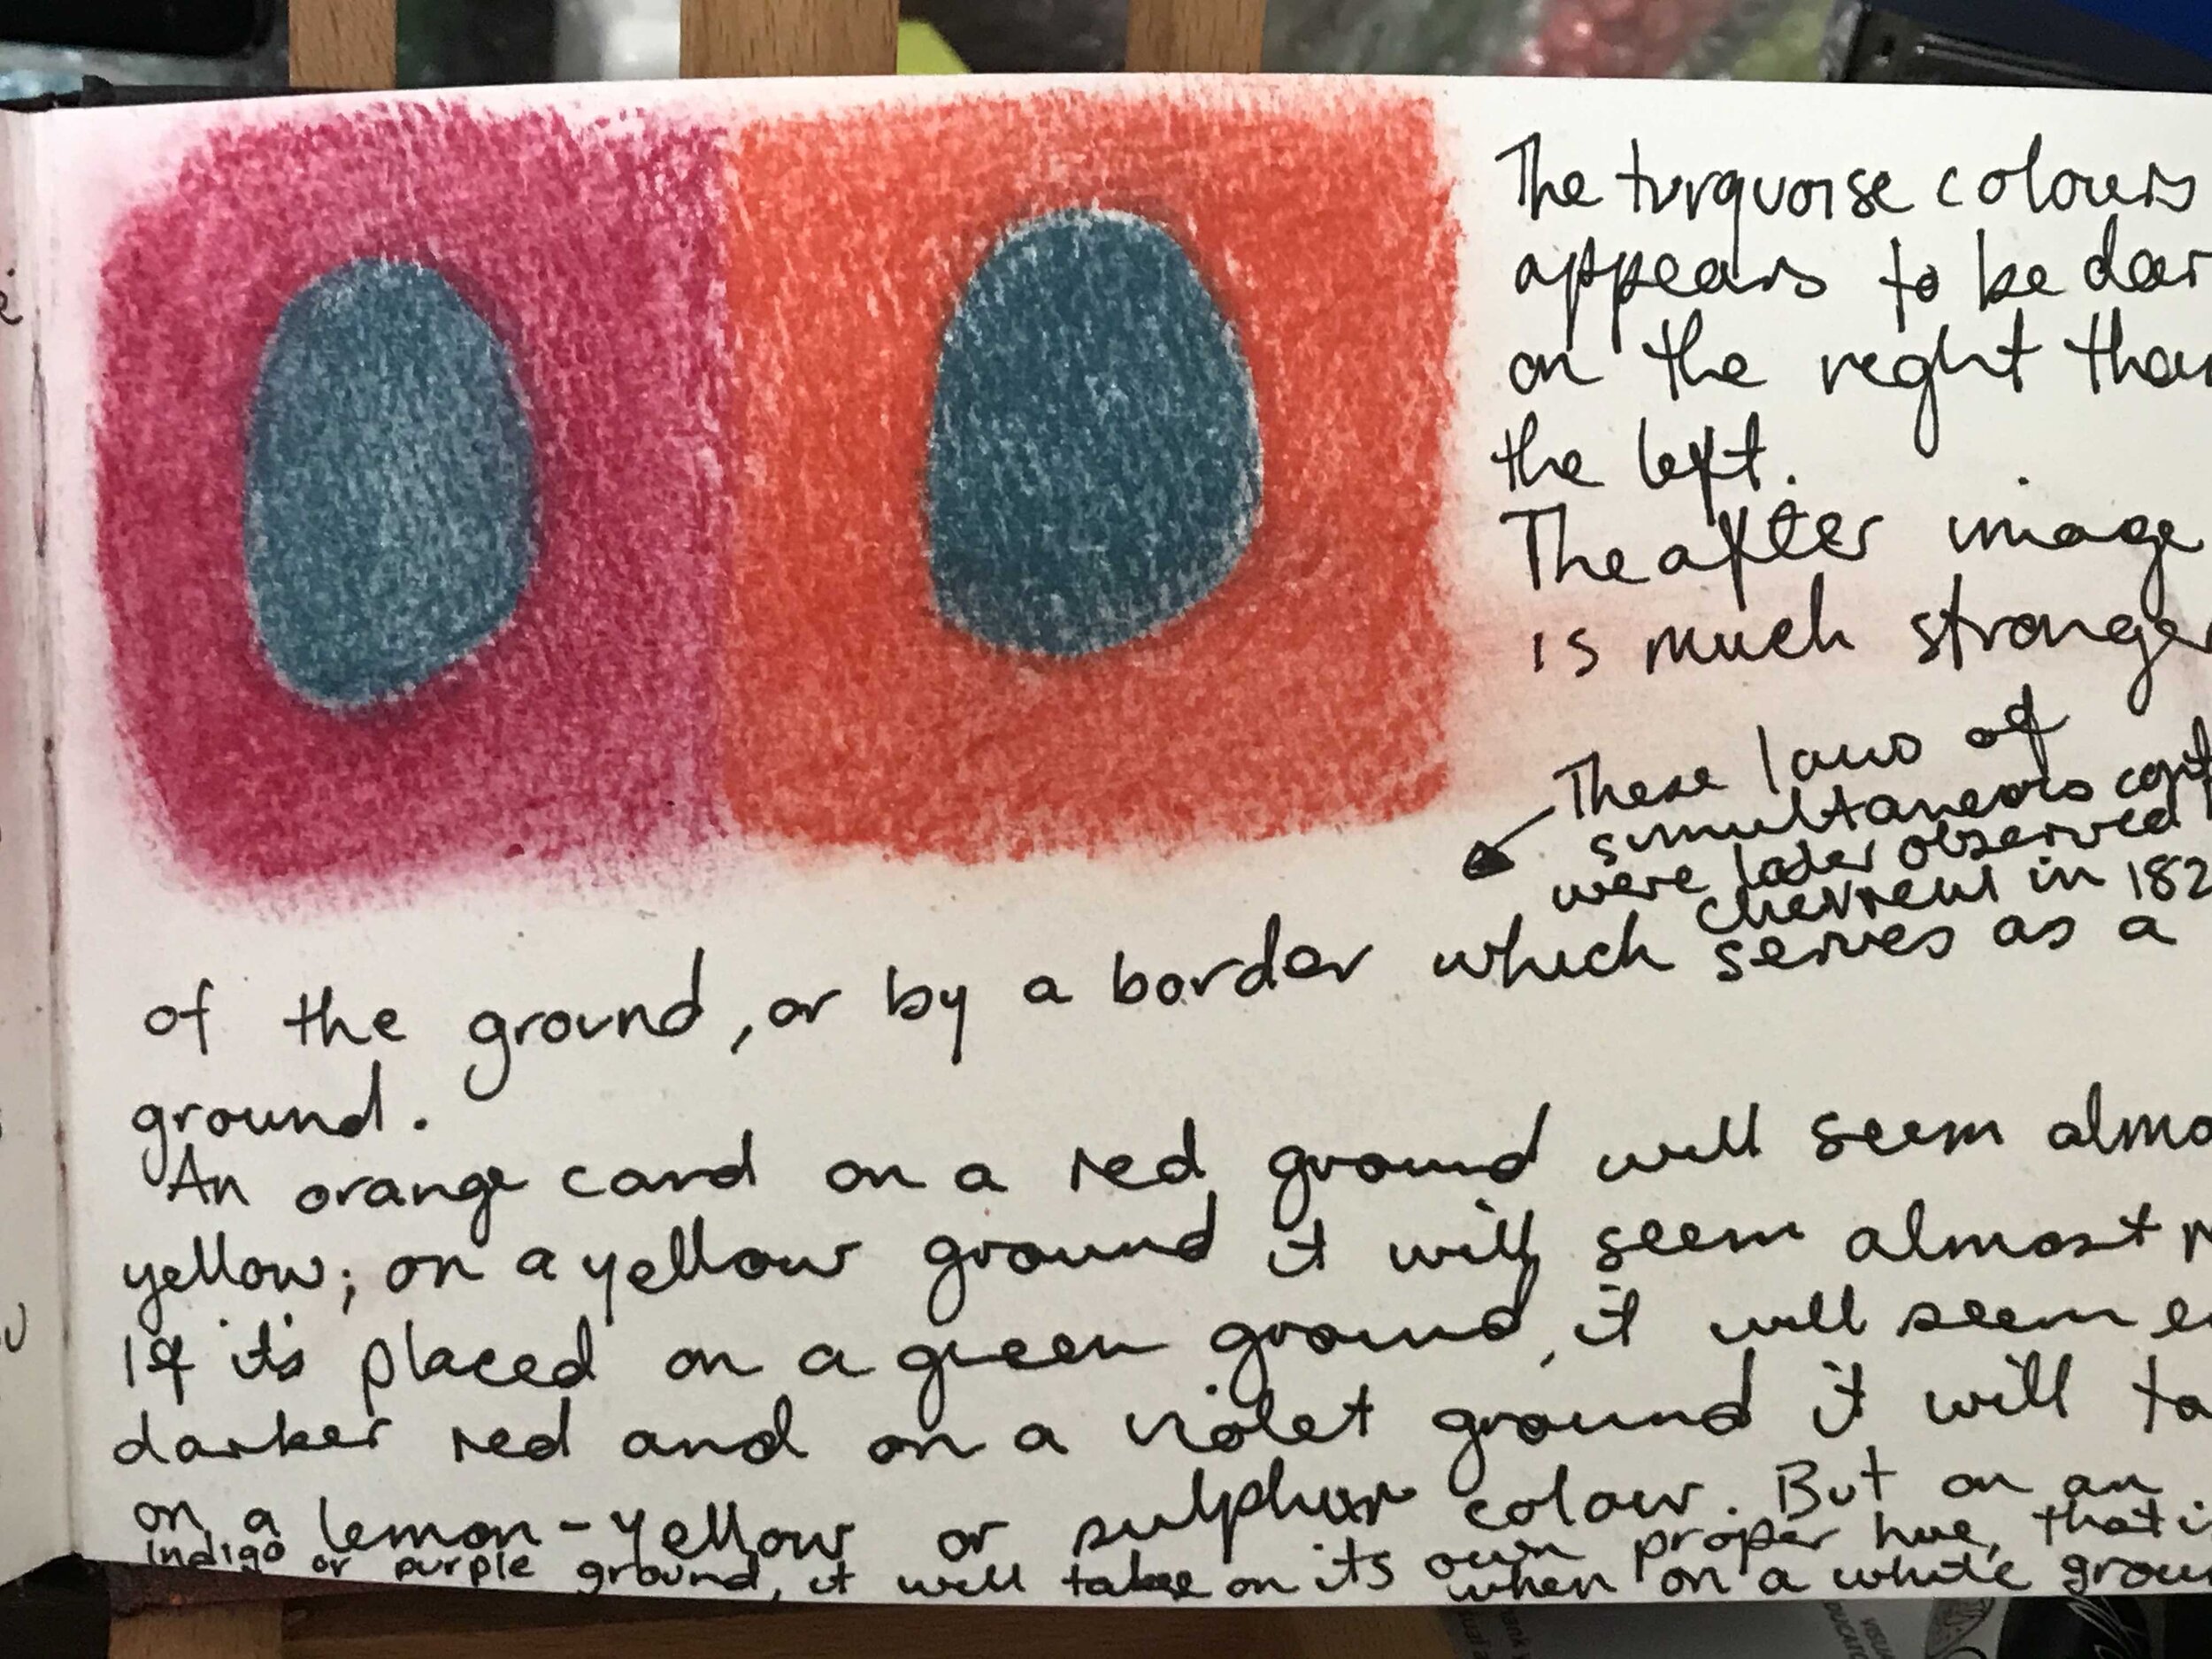 The turquoise colours
appears to be dar
on the right than
the left.
The after image
is much stronger
These laws of
simultaneous cont
were later observed
chevreul in 182
of the ground, or by a border which serves as a
ground.
An orange card on a red ground will seem almo
yellow; on a yellow ground it will seem almost r
If it's placed on a green ground, it will seem e
darker red and on a violet ground it will ta
on a lemon-yellow or sulphur colour. But on an
Indigo or purple ground, it will take on its own proper hue, that i
when on a white groun